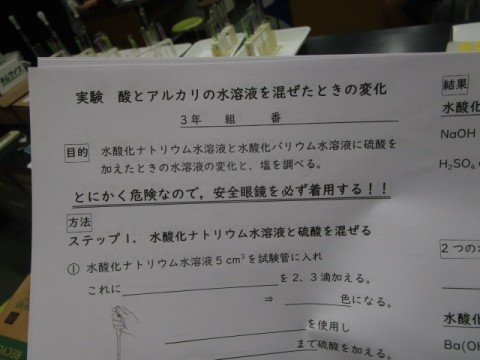 実験　酸とアルカリの水溶液を混ぜたときの変化
3年　組　番
目的　水酸化ナトリウム水溶液と水酸化バリウム水溶液に硫酸を
加えたときの水溶液の変化と、塩を調べる。
とにかく危険なので，安全眼鏡を必ず着用する！！
方法
ステップ1．水酸化ナトリウム水溶液と硫酸を混ぜる
① 水酸化ナトリウム水溶液5 cm³を試験管に入れ
これに＿＿＿＿を2、3滴加える。
⇒ ＿＿＿＿色になる。
＿＿＿＿を使用し
＿＿＿＿まで硫酸を加える。
結果
水酸化
NaOH
H₂SO₄
2つの
水酸化
Ba(OH